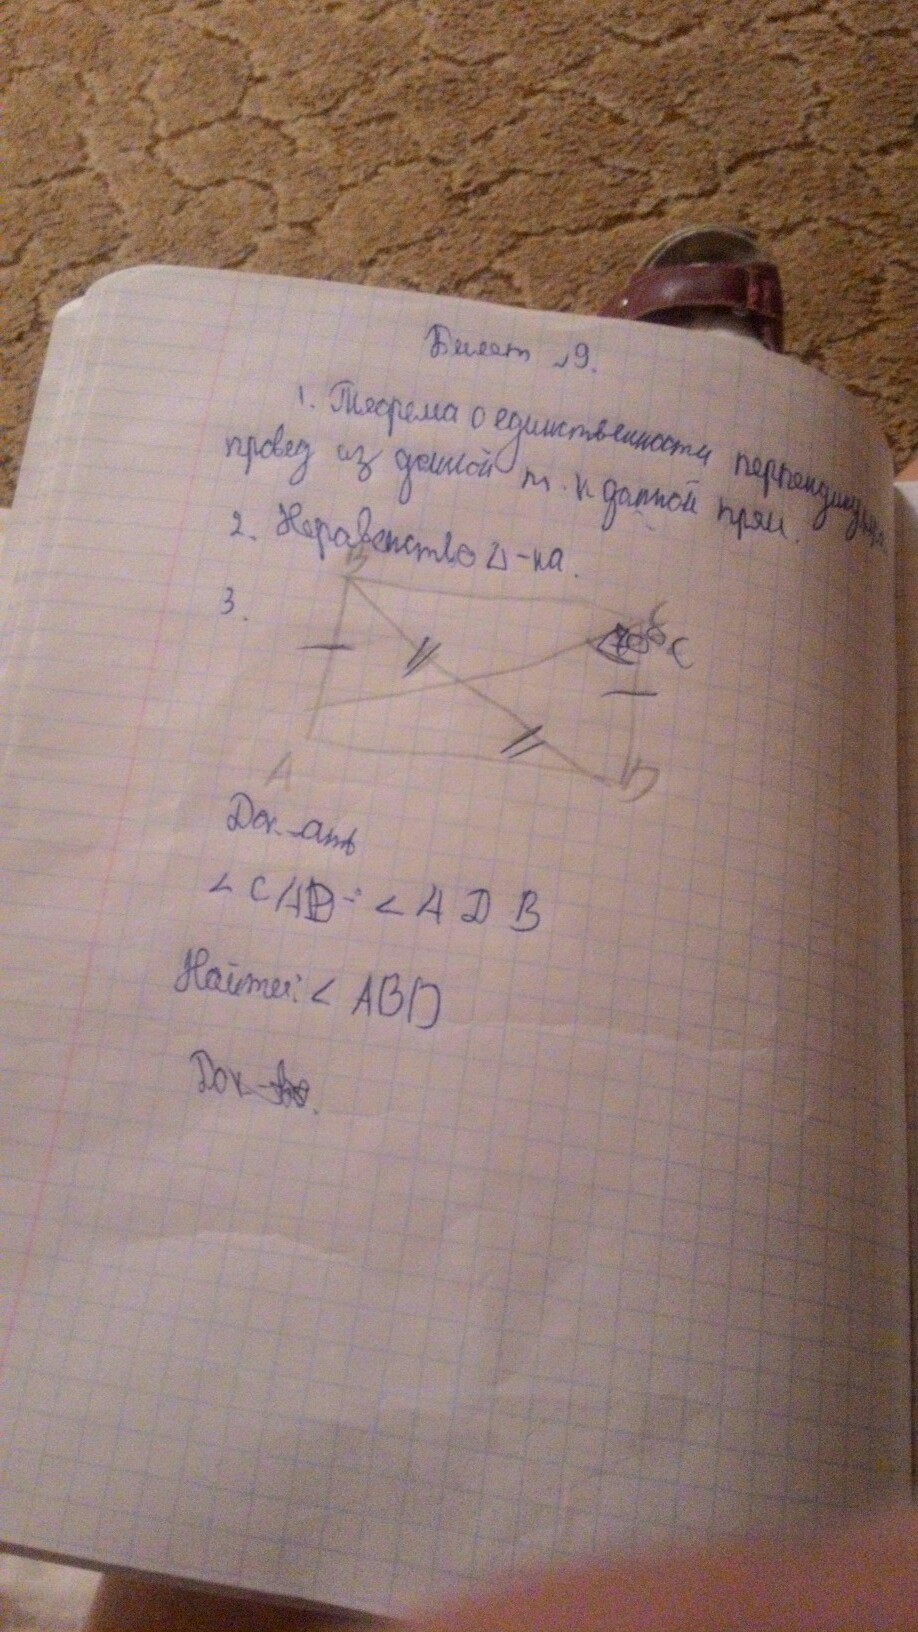 Билет 9.
1. Теорема о единственности перпендикуляра
провед из данной т. к данной прям.
2. Неравенство Δ-ка.
3.
B
C
A
D
Док-ать
< CAD = < ADB
Найти: < ABD
Док-во.